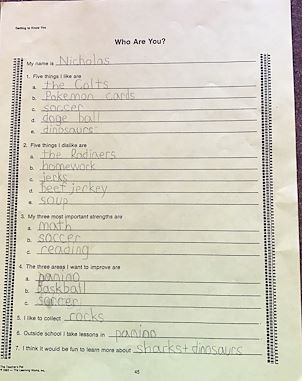 Getting to Know You
Who Are You?
My name is Nicholas
1. Five things I like are
a. the Colts
b. Pokemon cards
c. soccer
d. doge ball
e. dinosaurs
2. Five things I dislike are
a. the Radiners
b. homework
c. jerks
d. beef jerkey
e. soup
3. My three most important strengths are
a. math
b. soccer
c. reading
4. The three areas I want to improve are
a. panino
b. Baskball
c. soccer
5. I like to collect rocks
6. Outside school I take lessons in panino
7. I think it would be fun to learn more about sharks + dinosaurs
The Teacher's Pet
The Learning Works, Inc.
45